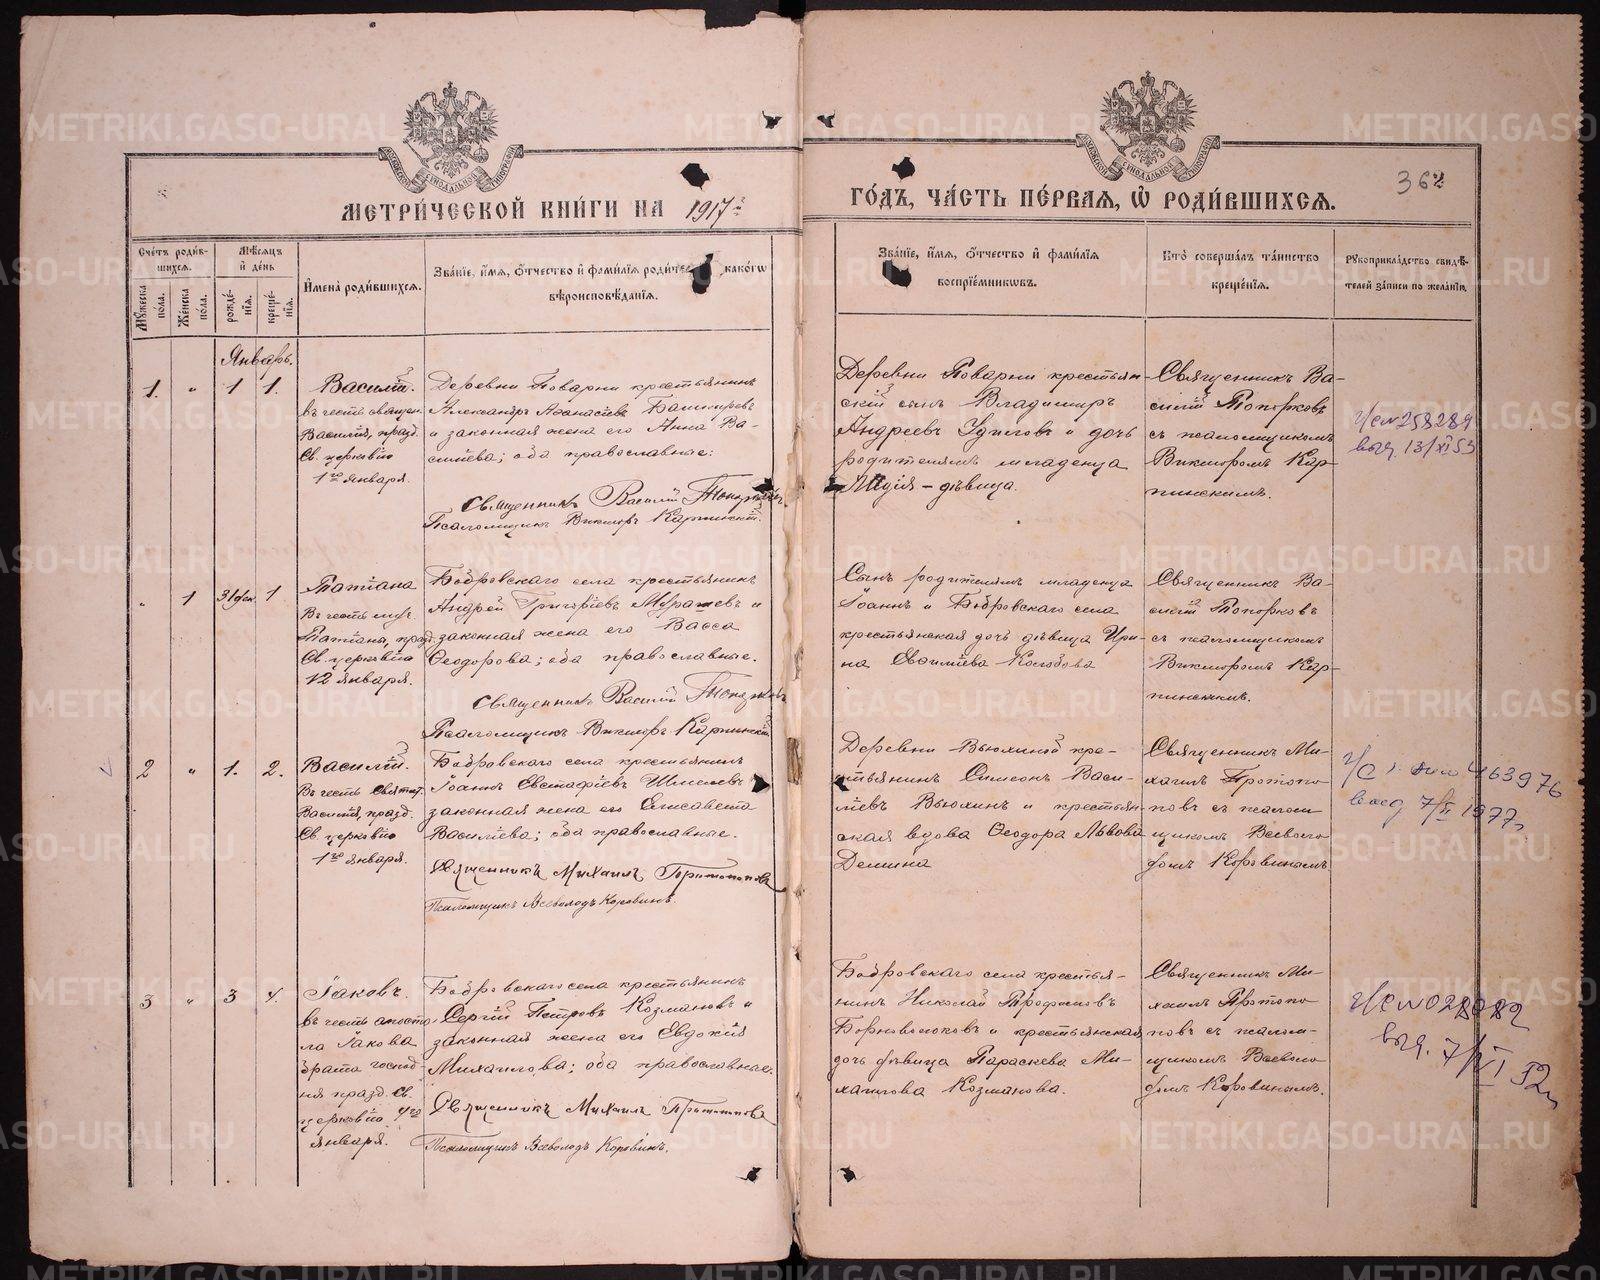 МЕТРИ́ЧЕСКОЙ КНИ́ГИ НА 1917й
ГО́ДЪ, ЧА́СТЬ ПЕ́РВАЯ, Ѡ҆ РОДИ́ВШИХСЯ.
36
Сче́тъ роди́в-
шихся.
Му́жеска
по́ла.
Же́нска
по́ла.
Мѣ́сяцъ
и҆ де́нь
рожде́-
нїя.
креще́-
нїя.
И҆мена̀ роди́вшихся.
Зва́нїе, и҆́мя, ѻ҆́тчество и҆ фами́лїя роди́те како́гѡ
вѣроисповѣ́данїя.
Зва́нїе, и҆́мя, ѻ҆́тчество и҆ фами́лїя
воспрїе́мниковъ.
Кто̀ соверша́лъ та́инство
креще́нїя.
Рꙋкоприкла́дство свидѣ́-
телей за́писи по жела́нїю.
Январь.
1. " 1 1.
Василій.
въ честь священ.
Василія, празд.
Св. церковію
1го января.
Деревни Поварни крестьянинъ
Александръ Аѳанасіевъ Башкиревъ
и законная жена его Анна Ва-
силіева; оба православные.
Священникъ Василій Топорковъ
Псаломщикъ Викторъ Карпинскій.
Деревни Поварни крестьян-
скій сынъ Владимиръ
Андреевъ и дочь
родителямъ младенца
Лидія – дѣвица.
Священникъ Ва-
силій Топорковъ
съ псаломщикомъ
Викторомъ Кар-
пинскимъ.
г/с №258289
выд. 13/XI 53
" 1 31 дек. 1
Татіана
Въ честь муч.
Татіаны, празд.
Св. церковію
12 января.
Бобровскаго села крестьянинъ
Андрей Григоріевъ Мурашевъ и
законная жена его Васса
Ѳеодорова; оба православные.
Священникъ Василій Топорковъ
Псаломщикъ Викторъ Карпинскій
Сынъ родителямъ младенца
Іоаннъ и Бобровскаго села
крестьянская дочь дѣвица Ири-
на Евсиліева Колобова
Священникъ Ва-
силій Топорковъ
съ псаломщикомъ
Викторомъ Кар-
пинскимъ.
2 " 1. 2.
Василій.
Въ честь Святит.
Василія, празд.
Св. церковію
1го января.
Бобровскаго села крестьянинъ
Іоаннъ Евстафіевъ Шмелевъ
законная жена его Елисавета
Василіева; оба православные.
Священникъ Михаилъ Протопоповъ
Псаломщикъ Всеволодъ Коровинъ.
Деревни Вьюхиной кре-
стьянинъ Симеонъ Васи-
ліевъ Вьюхинъ и крестьян-
ская вдова Ѳеодора Львова
Демина
Священникъ Ми-
хаилъ Протопо-
повъ съ псалом-
щикомъ Всеволо-
домъ Коровинымъ.
463976
выд 7/II 1977г
3 " 3 4.
Іаковъ.
въ честь апосто-
ла Іакова
брата господ-
ня празд. Св.
церковію 4го
января.
Бобровскаго села крестьянинъ
Сергій Петровъ Козмановъ и
законная жена его Евдокія
Михаилова; оба православные.
Священникъ Михаилъ Протопоповъ
Псаломщикъ Всеволодъ Коровинъ.
Бобровскаго села крестья-
нинъ Николай Трофимовъ
Борноволоковъ и крестьянская
дочь дѣвица Параскева Ми-
хаилова Козманова.
Священникъ Ми-
хаилъ Протопо-
повъ съ псалом-
щикомъ Всеволо-
домъ Коровинымъ.
г/с №028082
выд. 7/VI 52г